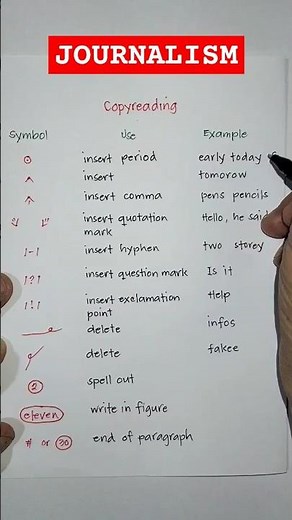 JOURNALISM
Copyreading
Symbol Use Example
⊙ insert period early today
^ insert tomorow
insert comma pens pencils
insert quotation mark Hello, he said
|-| insert hyphen two storey
|?| insert question mark Is it
|!| insert exclamation point Help
delete infos
delete fakee
2 spell out
eleven write in figure
# or 30 end of paragraph